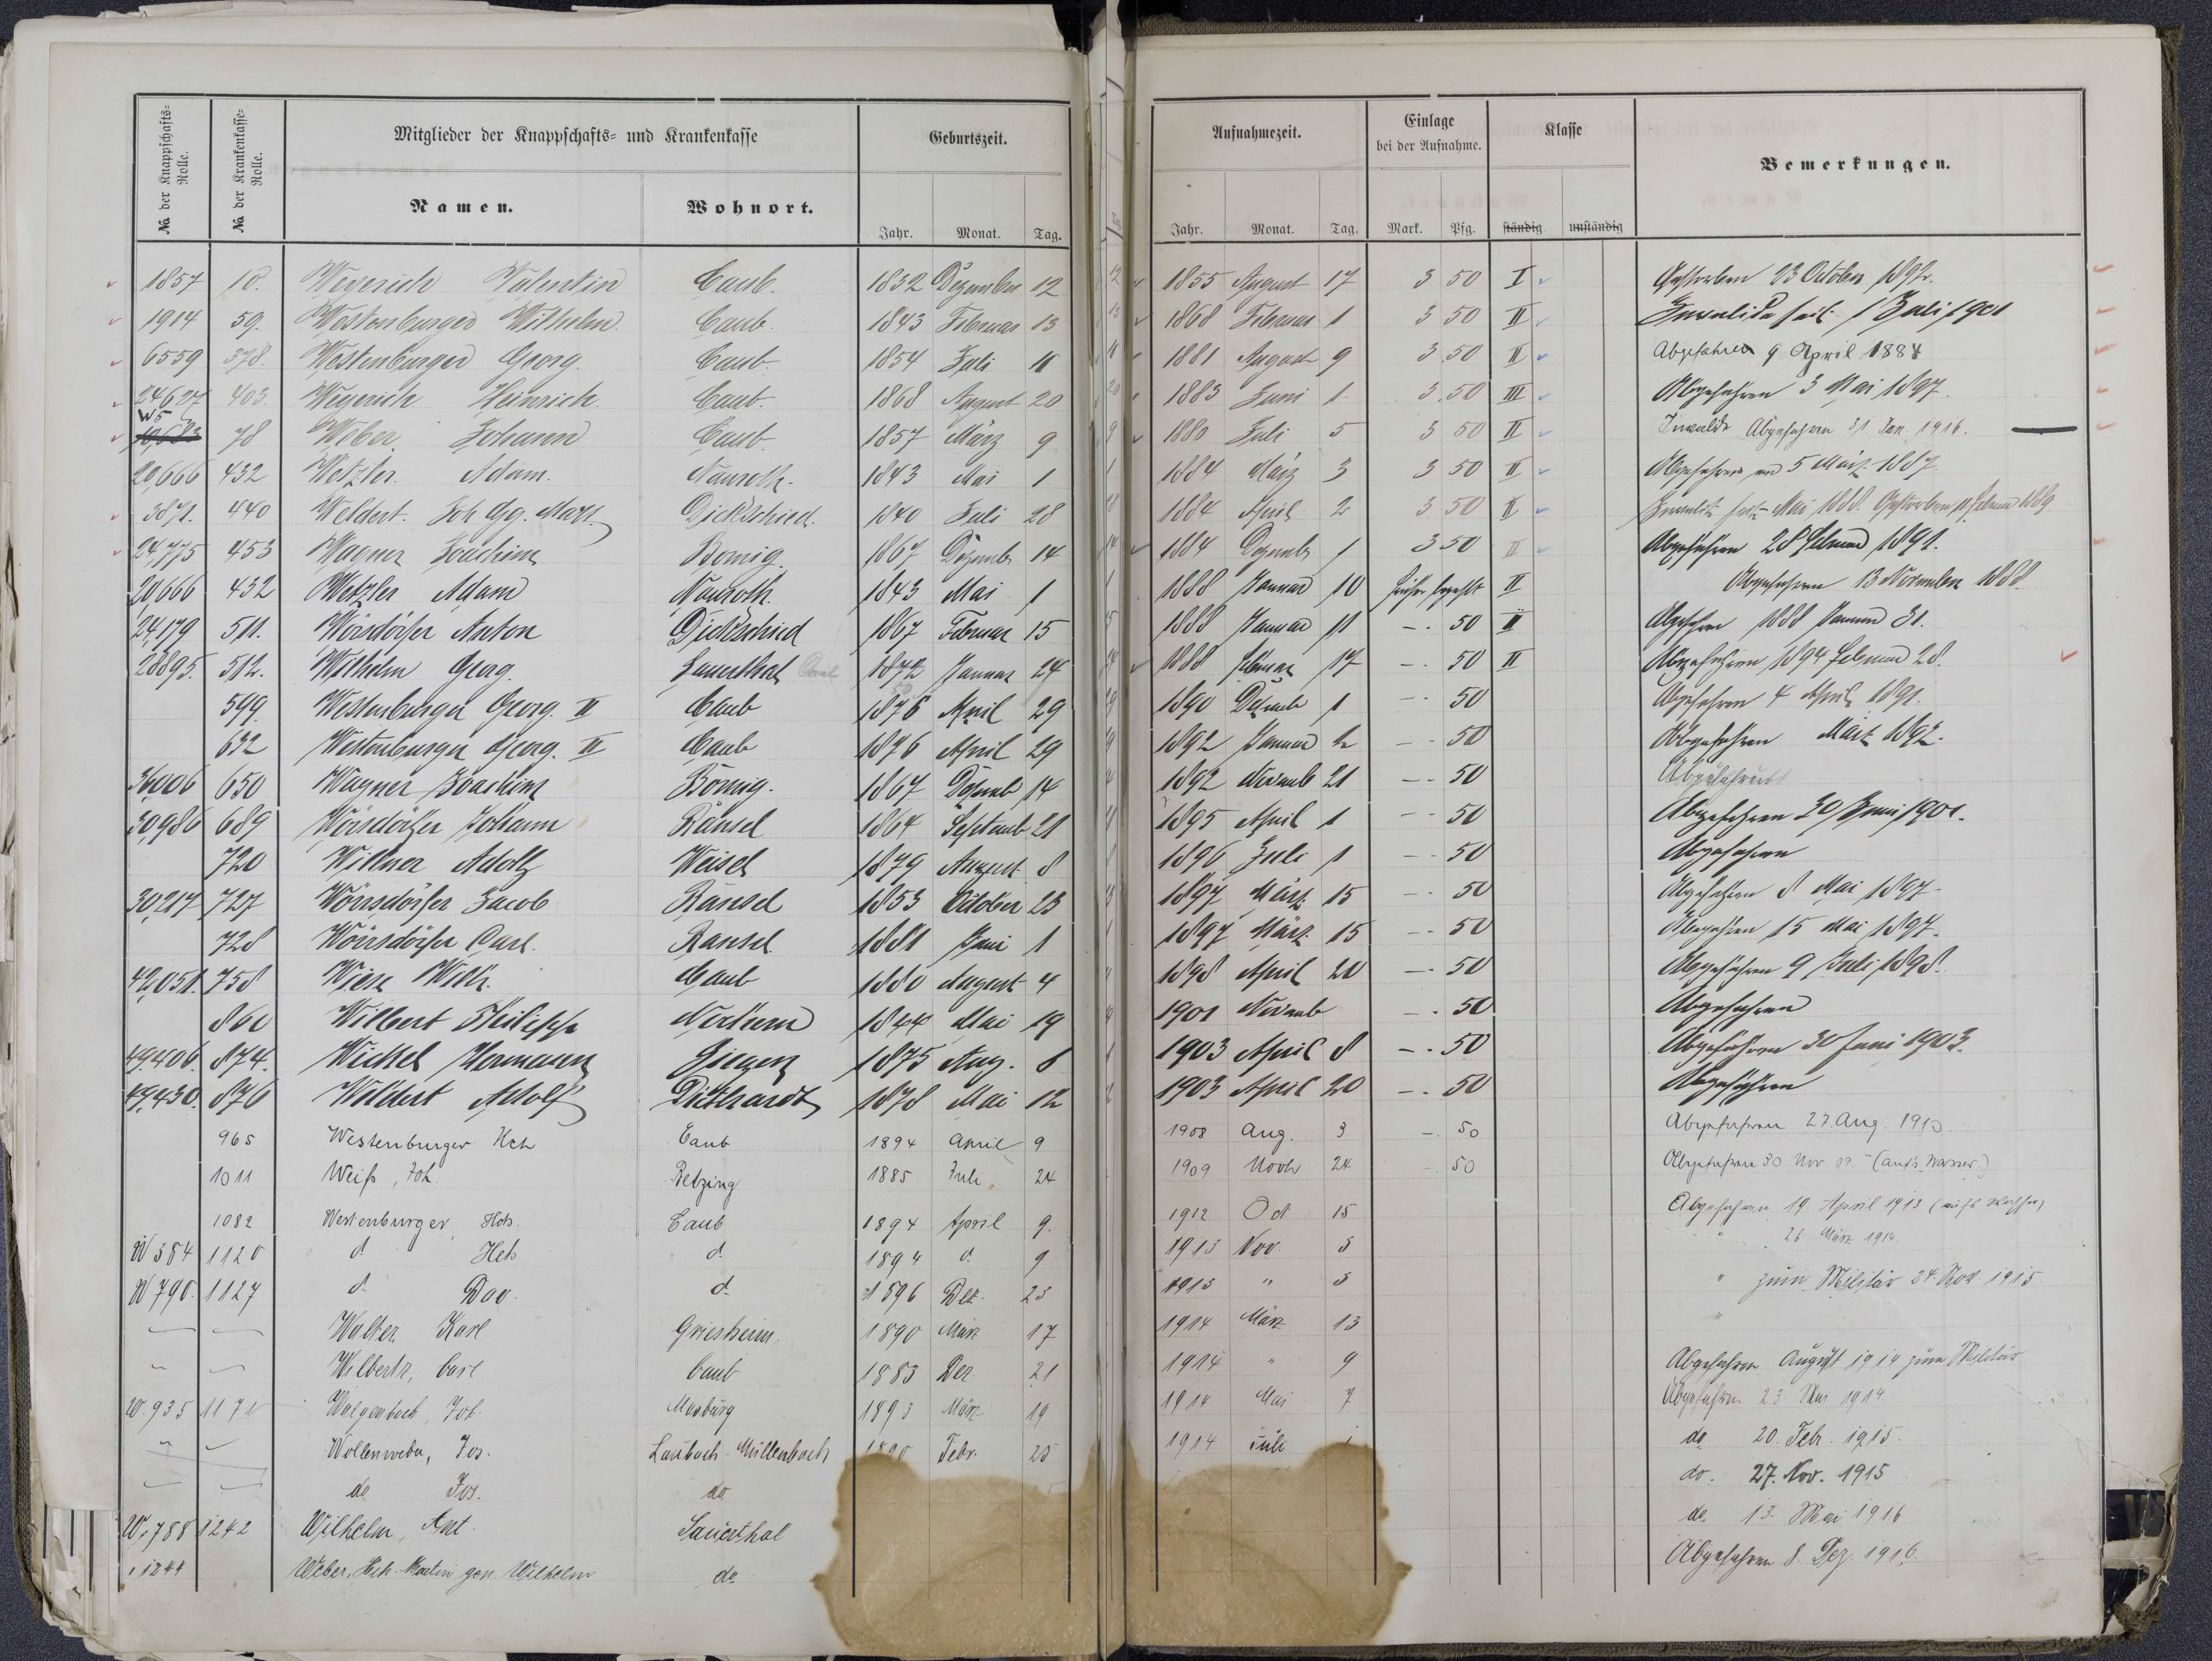 № der Knappschafts-Rolle. № der Krankenkasse-Rolle. Mitglieder der Knappschafts- und Krankenkasse Geburtszeit. Aufnahmezeit. Einlage bei der Aufnahme. Klasse Bemerkungen.
Namen. Wohnort. Jahr. Monat. Tag. Jahr. Monat. Tag. Mark. Pfg. ständig unständig
1857 10. Weyerich Valentin Caub. 1832 Dezember 12 1855 August 17 3 50 I Gestorben 23 October 1892.
1914 59. Westenburger Wilhelm Caub 1843 Februar 13 1868 Februar 1 3 50 II Invalide seit 1 Juli 1901
6559 378. Westenburger Georg. Caub. 1854 Juli 11 1881 August 9 3 50 II Abgefahren 9 April 1884
24627 403. Weyerich Heinrich. Caub. 1868 August 20 1883 Juni 1. 3.50 III Abgefahren 3 Mai 1897.
W5 78 Weber Johann Caub. 1857 März 9 1880 Juli 5 3 50 II Invalide Abgefahren 31 Jan. 1916.
20,666 432 Wetzler. Adam. Nauroth. 1843 Mai 1 1884 März 3 3 50 II Abgefahren am 5 März 1887
3871. 440 Weldert. Joh Gg. Mart. Dickschied. 1840 Juli 28 1884 April 2 3 50 II Invalide seit Mai 1888. Gestorben Februar 1889
24,775 453 Wagner Joachim Bornig. 1867 Dezemb. 14 1884 Dezemb. 1 3 50 II Abgefahren 28 Februar 1891.
20,666 432 Wetzler Adam Nauroth. 1843 Mai 1 1888 Januar 10 früher bezahlt II Abgefahren 13 November 1888.
24,179 511. Wörsdörfer Anton Dickschied 1867 Februar 15 1888 Januar 11 -. 50 II Abgefahren 1888 Januar 31.
28895. 512. Wilhelm Georg. Sauerthal Caub 1872 Januar 24 1888 Februar 17 -. 50 II Abgefahren 1894 Februar 28.
599. Westenburger Georg. II Caub 1876 April 29 1890 Dezemb 1 -. 50 Abgefahren 4 April 1891.
632 Westenburger Georg. II Caub 1876 April 29 1892 Januar 2 -. 50 Abgefahren März 1892.
36,006 650 Wagner Joachim Bornig. 1867 Dezemb 14 1892 Novemb 21 -. 50 Abgefahren
30,980 689 Wörsdörfer Johann Ransel 1864 Septemb 21 1895 April 1 -. 50 Abgefahren 30 Juni 1901.
720 Willner Adolf Weisel 1879 August 8 1896 Juli 1 -. 50 Abgefahren
30,217 727 Wörsdörfer Jacob Ransel 1853 October 23 1897 März 15 -. 50 Abgefahren 8 Mai 1897.
728 Wörsdörfer Carl. Ransel 1881 Juni 1 1897 März 15 -. 50 Abgefahren 15 Mai 1897.
42,051. 758 Caub 1880 August 4 1898 April 20 -. 50 Abgefahren 9 Juli 1898.
860 Wilbert Philipp 1844 Mai 19 1901 Novemb -. 50 Abgefahren
49,406. 874. Wickel Hermann Singen 1875 Aug. 6 1903 April 8 -. 50 Abgefahren 30 Juni 1903.
49,430. 876 Weldert Adolf Diethardt 1878 Mai 12 1903 April 20 -. 50 Abgefahren
965 Westenburger Hch Caub 1894 April 9 1908 Aug. 3 -. 50 Abgefahren 27 Aug. 1910
1011 Weiß, Joh. Retzing 1885 Juli. 24 1909 Novbr 24 50 Abgefahren 30 Nov 09. (auf's Wasser.)
1082 Westenburger, Hch. Caub 1894 April 9. 1912 Oct 15 Abgefahren 19 April 1913 (aufs Wasser)
W 384 1120 d. Hch d. 1894 d. 9 1913 Nov 5 " 26 März 1914.
W 790. 1127 d. Dav. d. 1896 Dez. 23 1913 " 5 " zum Militär 24. Nov. 1915
Walter Karl Griesheim. 1890 März 17 1914 März 13 "
Wilbertz, Carl Caub 1883 Dez 21 1914 " 9 Abgefahren August 1914 zum Militär
W. 935 1171 Walgenbach, Joh. Marburg 1893 März 19 1914 Mai 7 Abgefahren 23. Mai 1914.
Wollenweber, Jos. Laubach-Müllenbach 1890 Febr. 25 1914 Juli 1 do 20. Febr. 1915.
do Jos. do do. 27. Nov. 1915
W. 788 1242 Wilhelm, Ant. Sauerthal do. 13. Mai 1916
" 1244 Weber, Hch. Martin gen. Wilhelm do Abgefahren 8. Dez. 1916.